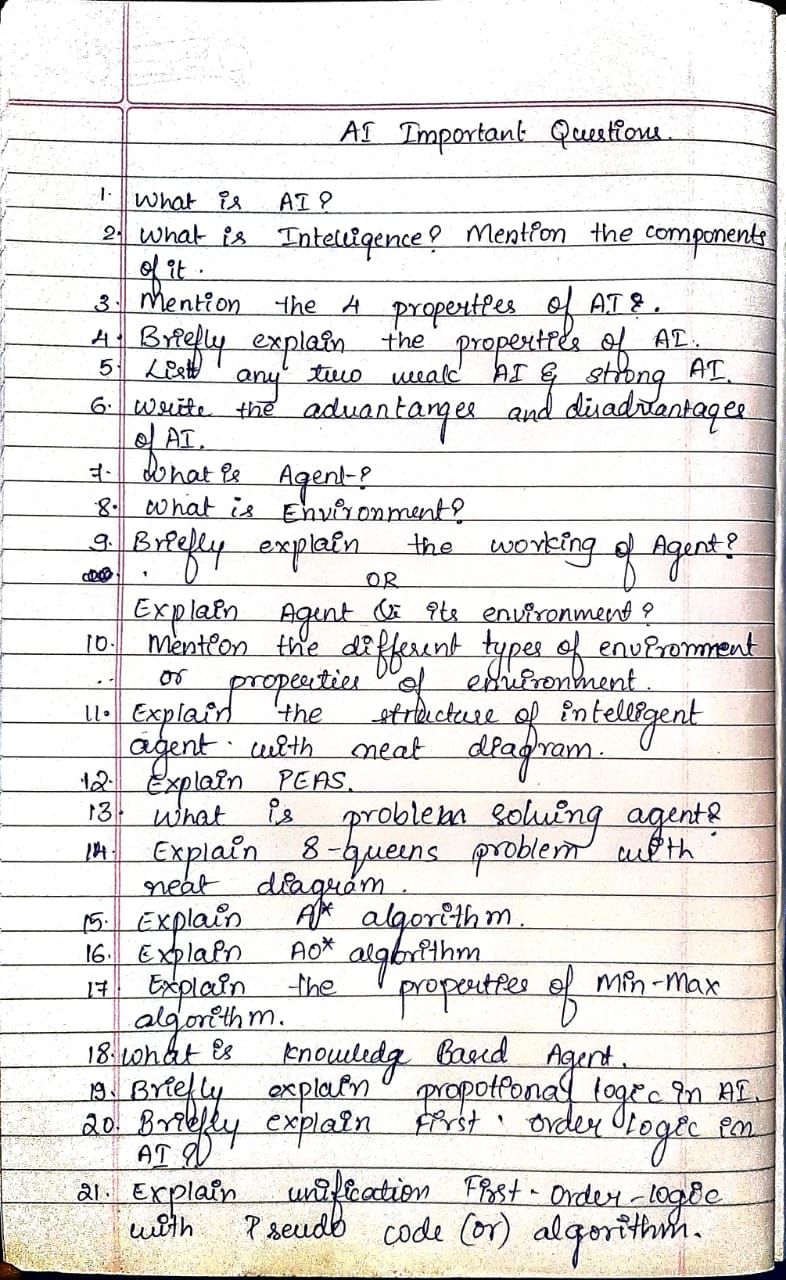 AI Important Questions.
1. What is AI?
2. What is Intelligence? Mention the components
of it.
3. Mention the 4 properties of AI?.
4. Briefly explain the properties of AI.
5. List any two weak AI & strong AI.
6. Write the aduantanges and disadvantages
of AI.
7. What is Agent-?
8. What is Environment?
9. Briefly explain the working of Agent?
OR
Explain Agent & its environment?
10. Mention the different types of enviromment
or properties of environment.
11. Explain the structure of intelligent
agent. with neat diagram.
12. Explain PEAS.
13. What is problem solving agent?
14. Explain 8-queens problem with
neat diagram.
15. Explain A* algorithm.
16. Explain AO* algorithm
17. Explain the properties of Min-Max
algorithm.
18. What is knowledge Based Agent.
19. Briefly explain propotional logic in AI.
20. Briefly explain First. order logic in
AI
21. Explain unification First-Order-logic
with Pseudo code (or) algorithm.